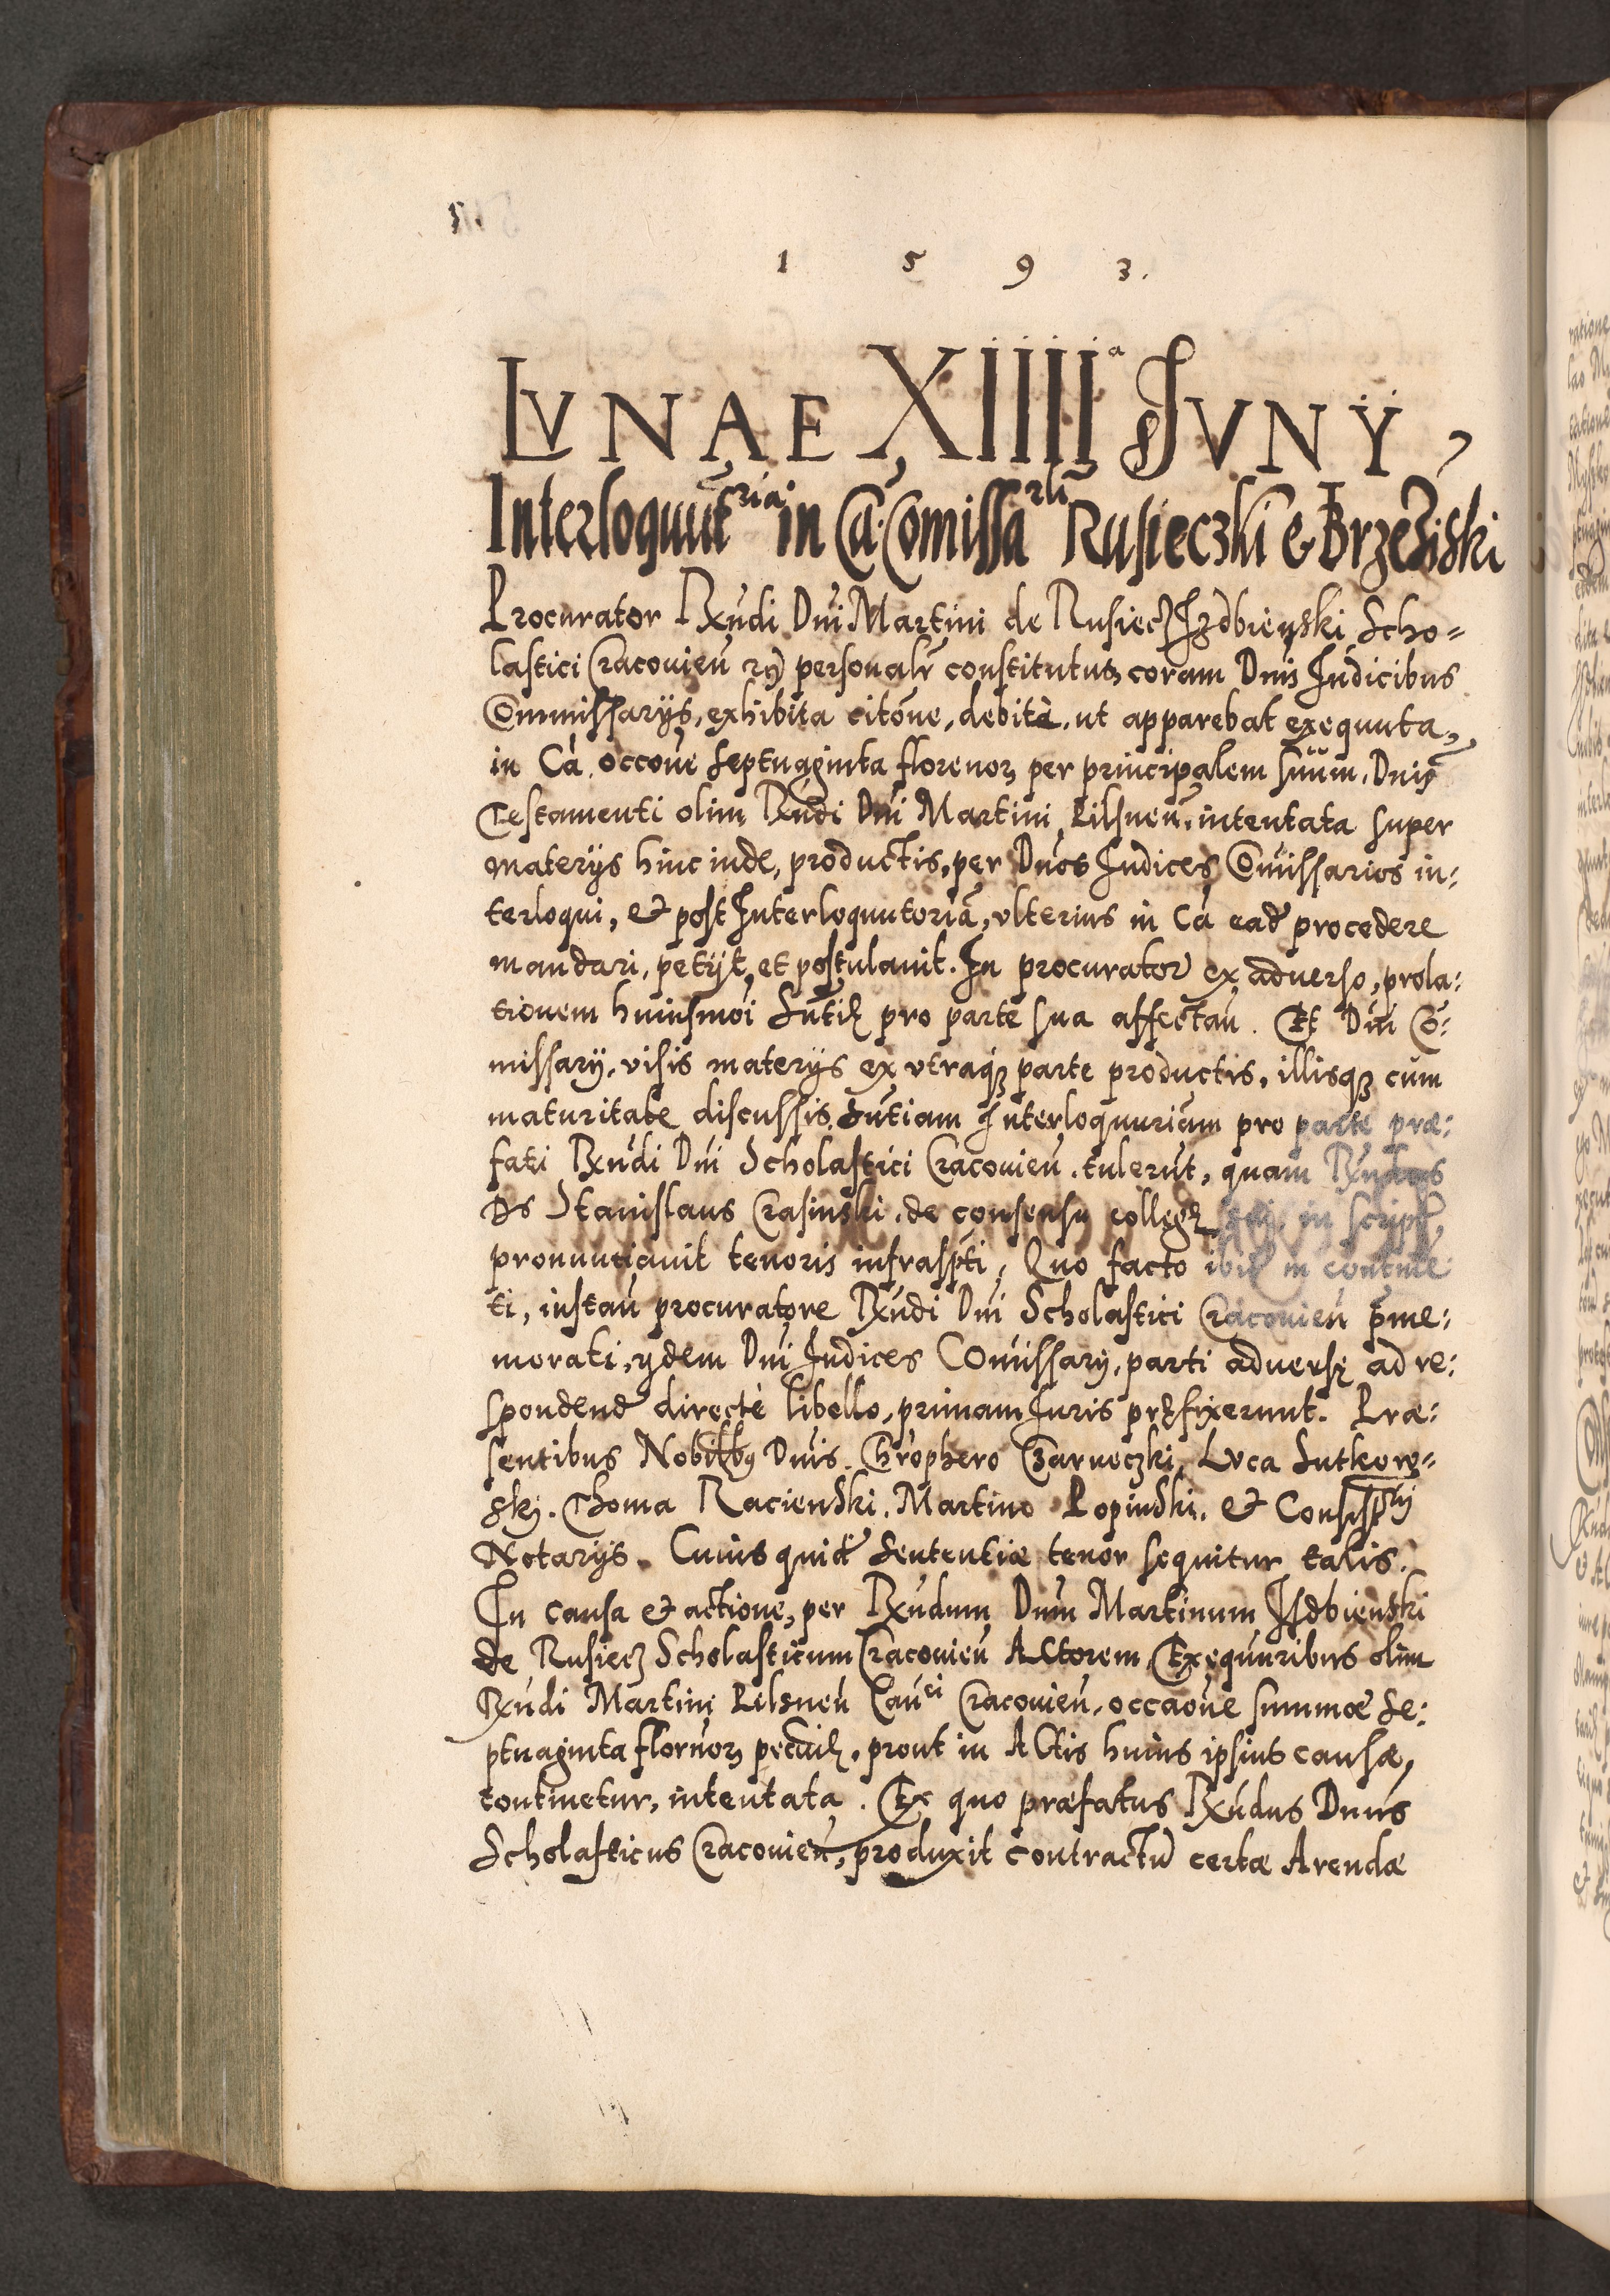 1 5 9 3.
LVNAE XIIIIa IVNY,
Interloquutria in Ca Comissarli Rusieczki & Brzeziski
Procurator Rxndi Dni Martini de Rusiecz Izdbieński Scho=
lastici Cracovien personalr constitutus coram Dnis Judicibus
Commissarijs, exhibita citone, debitè ut apparebat exequuta,
in Ca occone septuaginta florenor per principalem suum, Dnis
Testamenti olim Rxndi Dni Martini Pilsnen intentata super
materijs hinc inde, productis, per Dnos Judices Comissarios in:
terloqui, et post Interloquutoriã, ulterius in Ca ead procedere
mandari, petijt et postulavit. In procurator ex adverso, prola:
tionem huiusmoi Sntiæ pro parte sua affectan. Et Dni Co:
missarij, visis materijs ex utraqz parte productis, illisqz cum
maturitate discussis, Sntiam Interloquuriam pro parte præ:
fati Rxndi Dni Scholastici Cracovien. tulerũt, quam Rxndus
Ds Stanislaus Crasinski, de consensu colleg sui in script,
pronuntiavit tenoris infraspti, Quo facto ibid in contine
ti, instan procuratore Rxndi Dni Scholastici Cracovien pme:
morati, ijdem Dni Judices Comissarij, parti adversę ad re:
spondend directè libello, primam Juris præfixerunt. Præ:
sentibus Nobilibus Dnis. Chrophero Czarneczki, Luca Lutkow=
skj. Thoma Racieński. Martino Popinski. et Consisrij
Notarijs. Cuius quid Sententiæ tenor sequitur talis.
In causa et actione, per Rxndum Dnm Martinum Isdbienski
de Rusiecz Scholasticum Cracovien Actorem, Exequuribus olim
Rxndi Martini Pilsnen Canci Cracovien, occaone summæ Se:
ptuaginta flornor pecuniæ, prout in Actis huius ipsius causæ,
continetur, intentata. Ex quo præfatus Rxndus Dnus
Scholasticus Cracovien, produxit contractũ certæ Arendæ